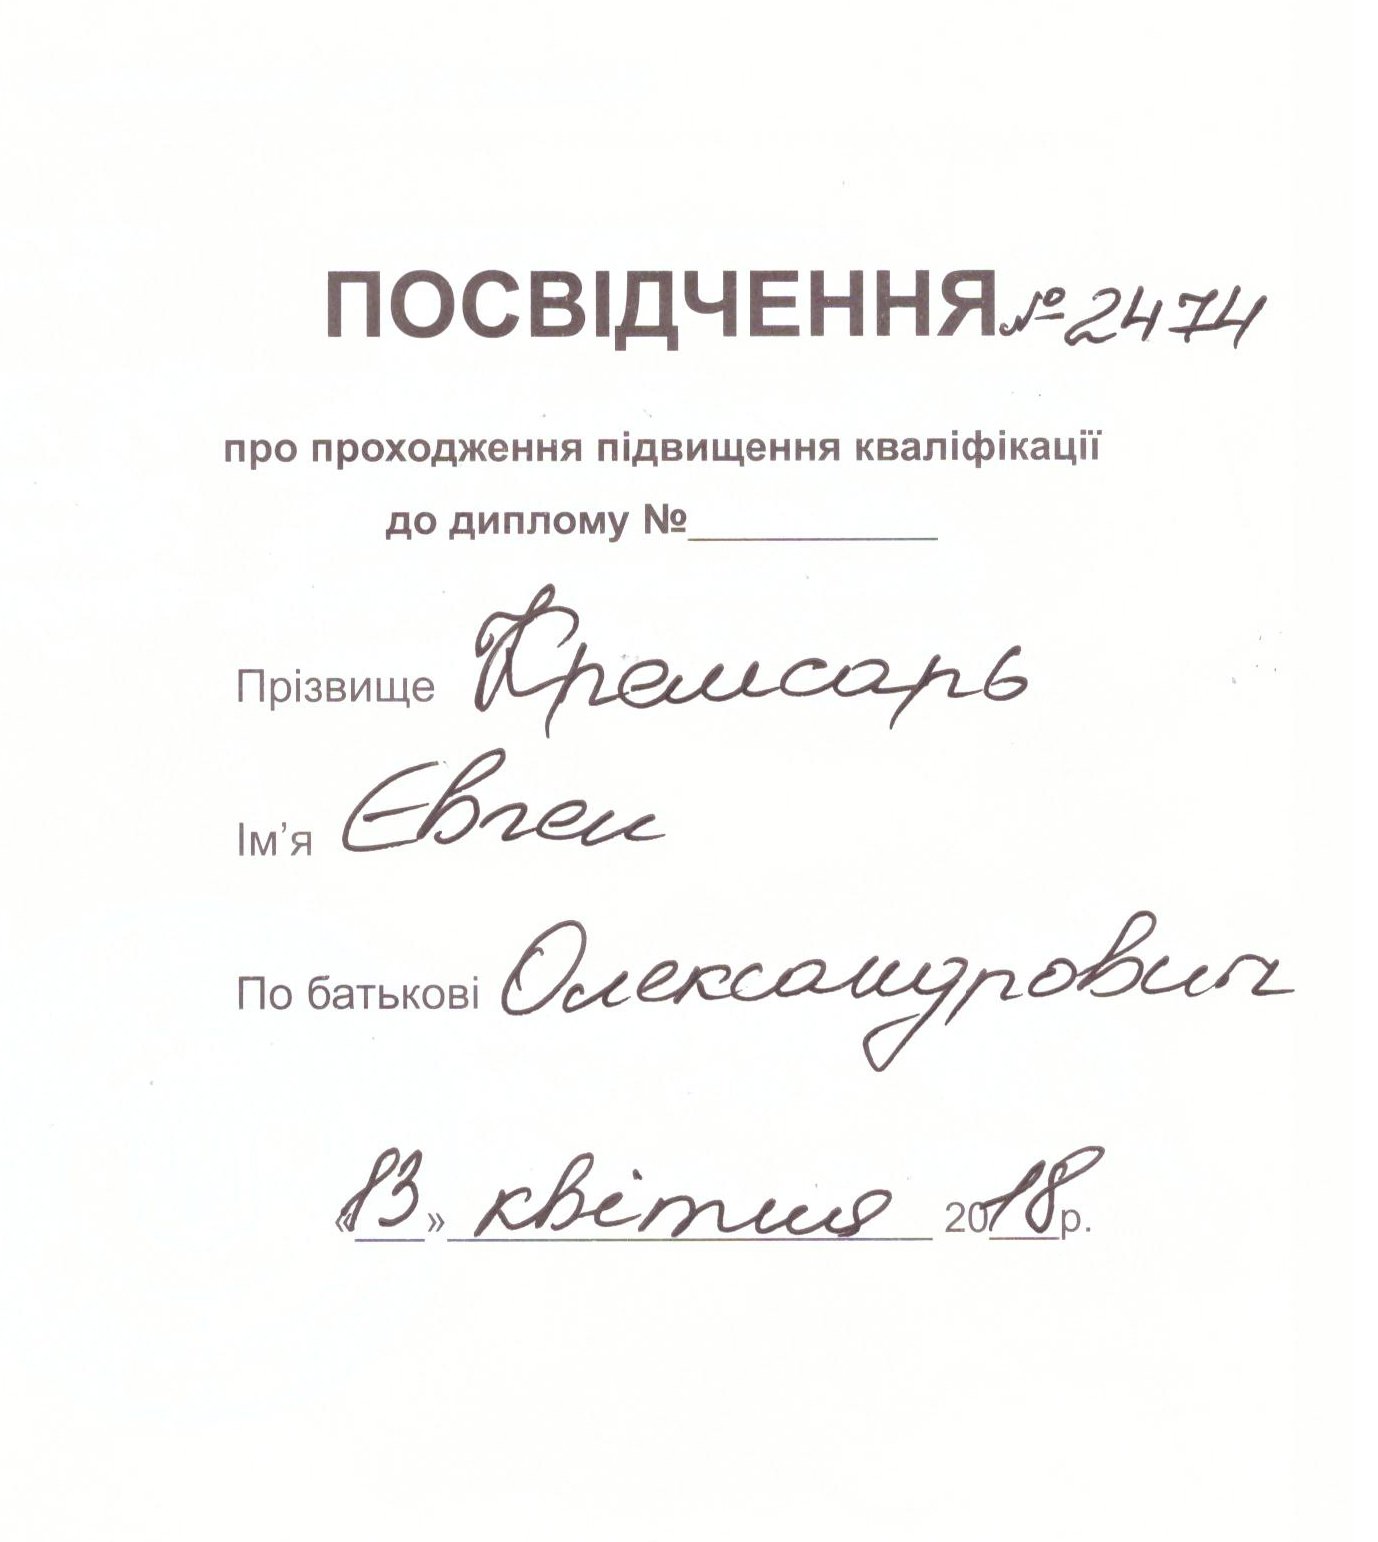 ПОСВІДЧЕННЯ № 2474
про проходження підвищення кваліфікації
до диплому №____________
Прізвище Кремсарь
Ім’я Євген
По батькові Олександрович
«13» квітня 2018р.